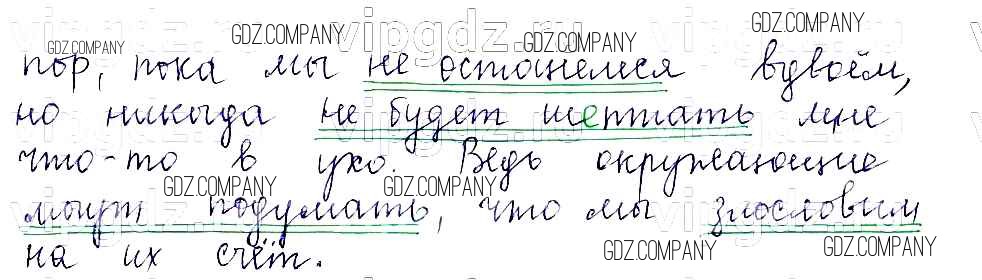 пор, пока мы не останемся вдвоём,
но никогда не будет шептать мне
что-то в ухо. Ведь окружающие
могут подумать, что мы злословим
на их счёт.
GDZ.COMPANY
GDZ.COMPANY
GDZ.COMPANY
GDZ.COMPANY
GDZ.COMPANY
GDZ.COMPANY
GDZ.COMPANY
GDZ.COMPANY
vipgdz.ru